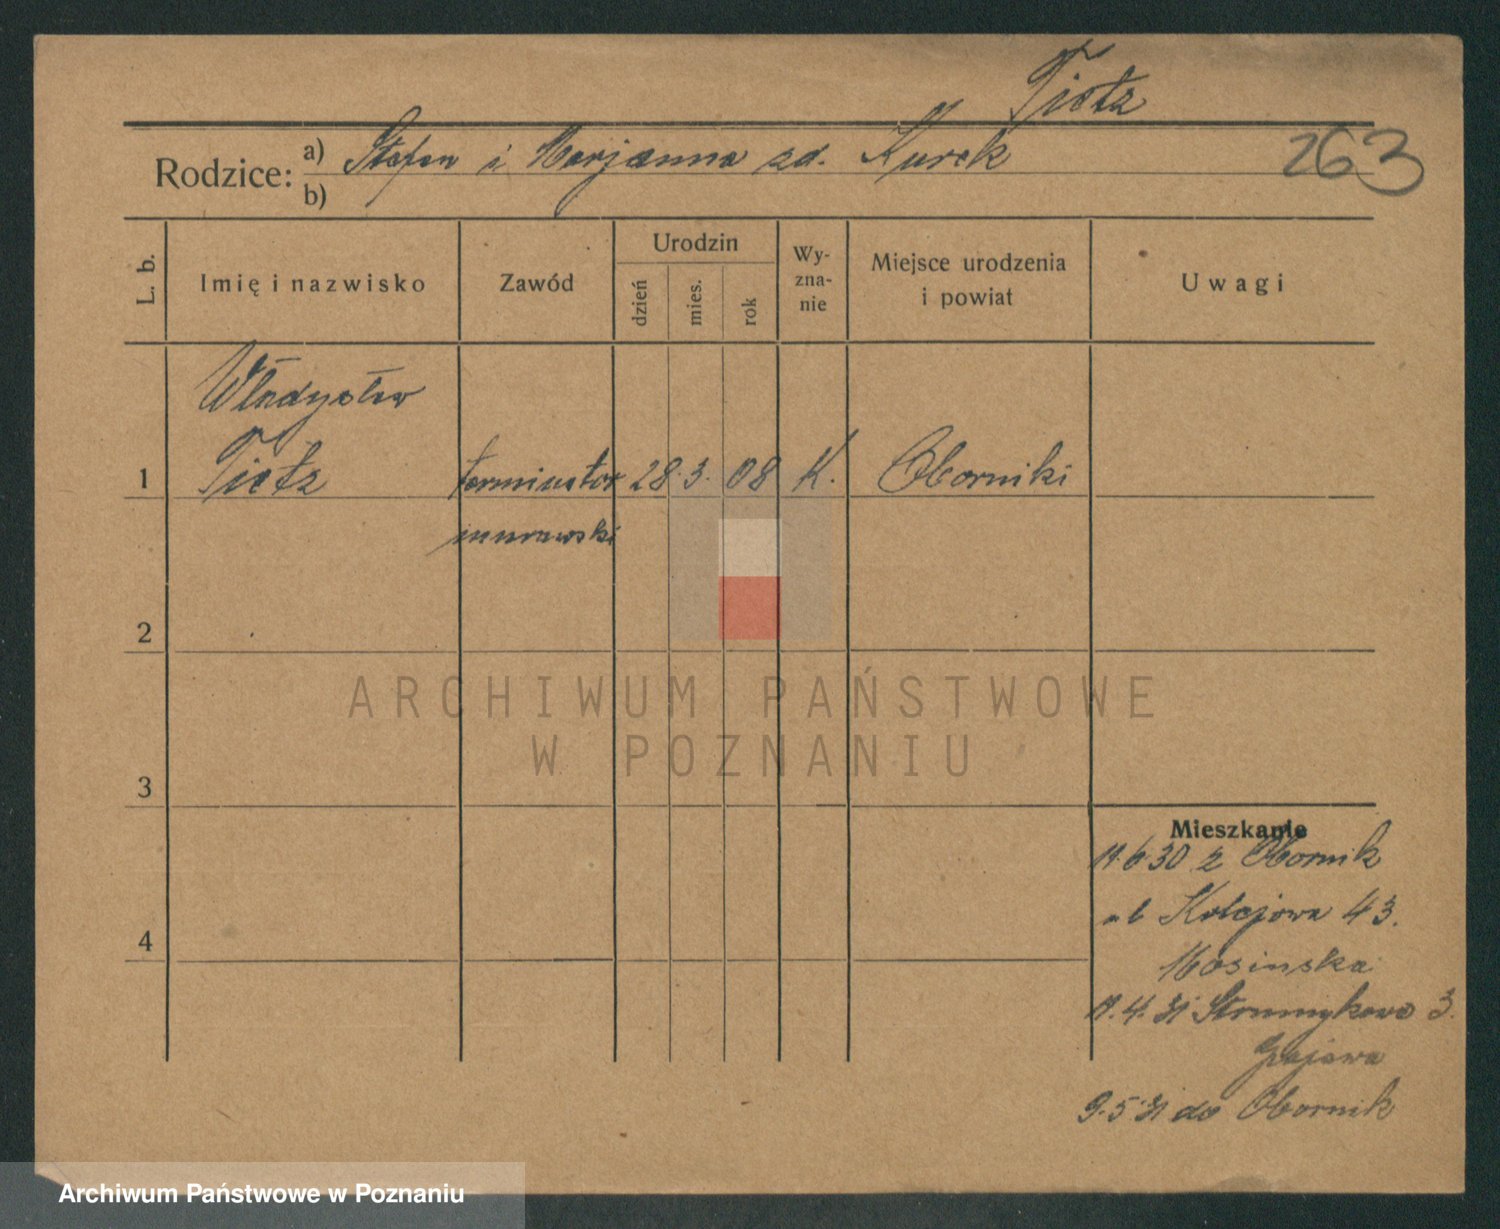 Tietz
263
Rodzice: a) Stefan i Marjanna zd. Kurek
b)
L. b.
Imię i nazwisko
Zawód
Urodzin
dzień
mies.
rok
Wy-
zna-
nie
Miejsce urodzenia
i powiat
Uwagi
Władysław
1 Tietz terminator 28. 3. 08 K. Oborniki
murarski
2
3
4
Mieszkanie
11.6.30 z Obornik
ul Kolejowa 43.
Mosinska
11.4.31 Strumykowa 3.
Gajowa
9.5.31 do Obornik
ARCHIWUM PAŃSTWOWE
W POZNANIU
Archiwum Państwowe w Poznaniu